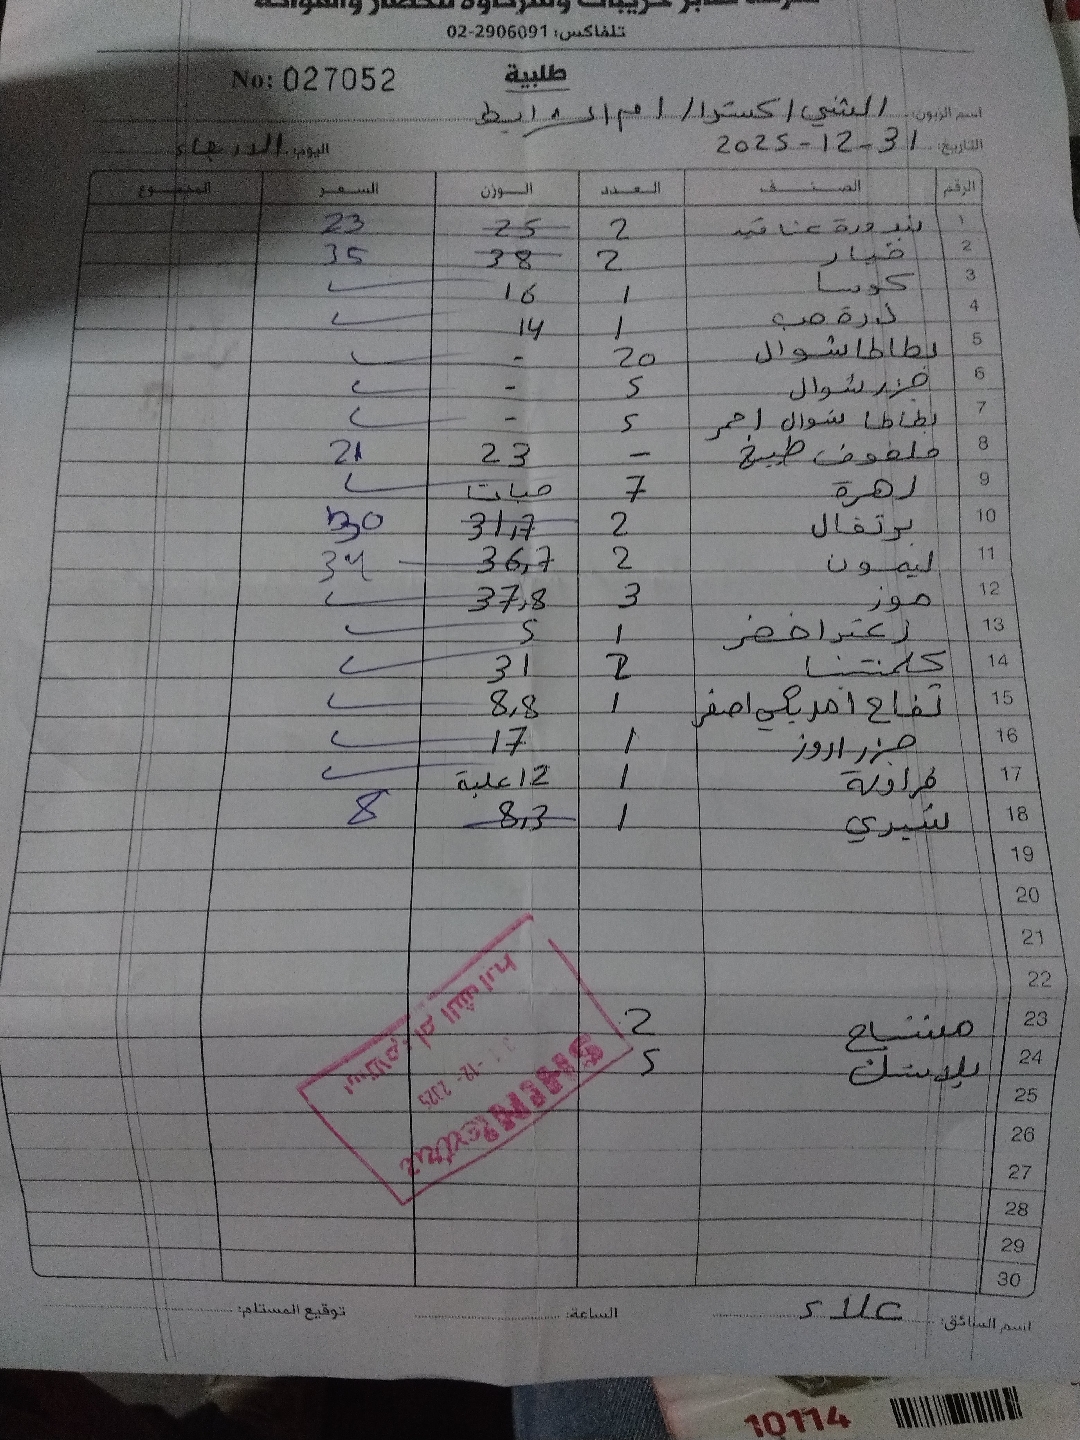 تلفاكس: 02-2906091
No: 027052
طلبية
اسم الزبون: الشني اكسترا / ام الشرايط
التاريخ: 31-12-2025 اليوم: الاربعاء
الرقم الصنف العدد الوزن السعر المجموع
1 بندورة عناقيد 2 25 23
2 خيار 2 38 35
3 كوسا 1 16
4 ذرة حب 1 14
5 بطاطا شوال 20 -
6 جزر شوال 5 -
7 بطاطا شوال احمر 5 -
8 ملفوف طبيخ - 23 21
9 زهرة 7 حبات
10 برتقال 2 31,7 30
11 ليمون 2 36,7 34
12 موز 3 37,8
13 زعتر اخضر 1 5
14 كلمنتينا 2 31
15 تفاح امريكي اصفر 1 8,8
16 جزر اروز 1 17
17 فراولة 1 12 علبة
18 شيري 1 8,3 8
19
20
21
22
23 مشتاح 2
24 بلاستك 5
25
26
27
28
29
30
SHINI extra
12-2025
اسم السائق: علاء الساعة: توقيع المستلم:
10114